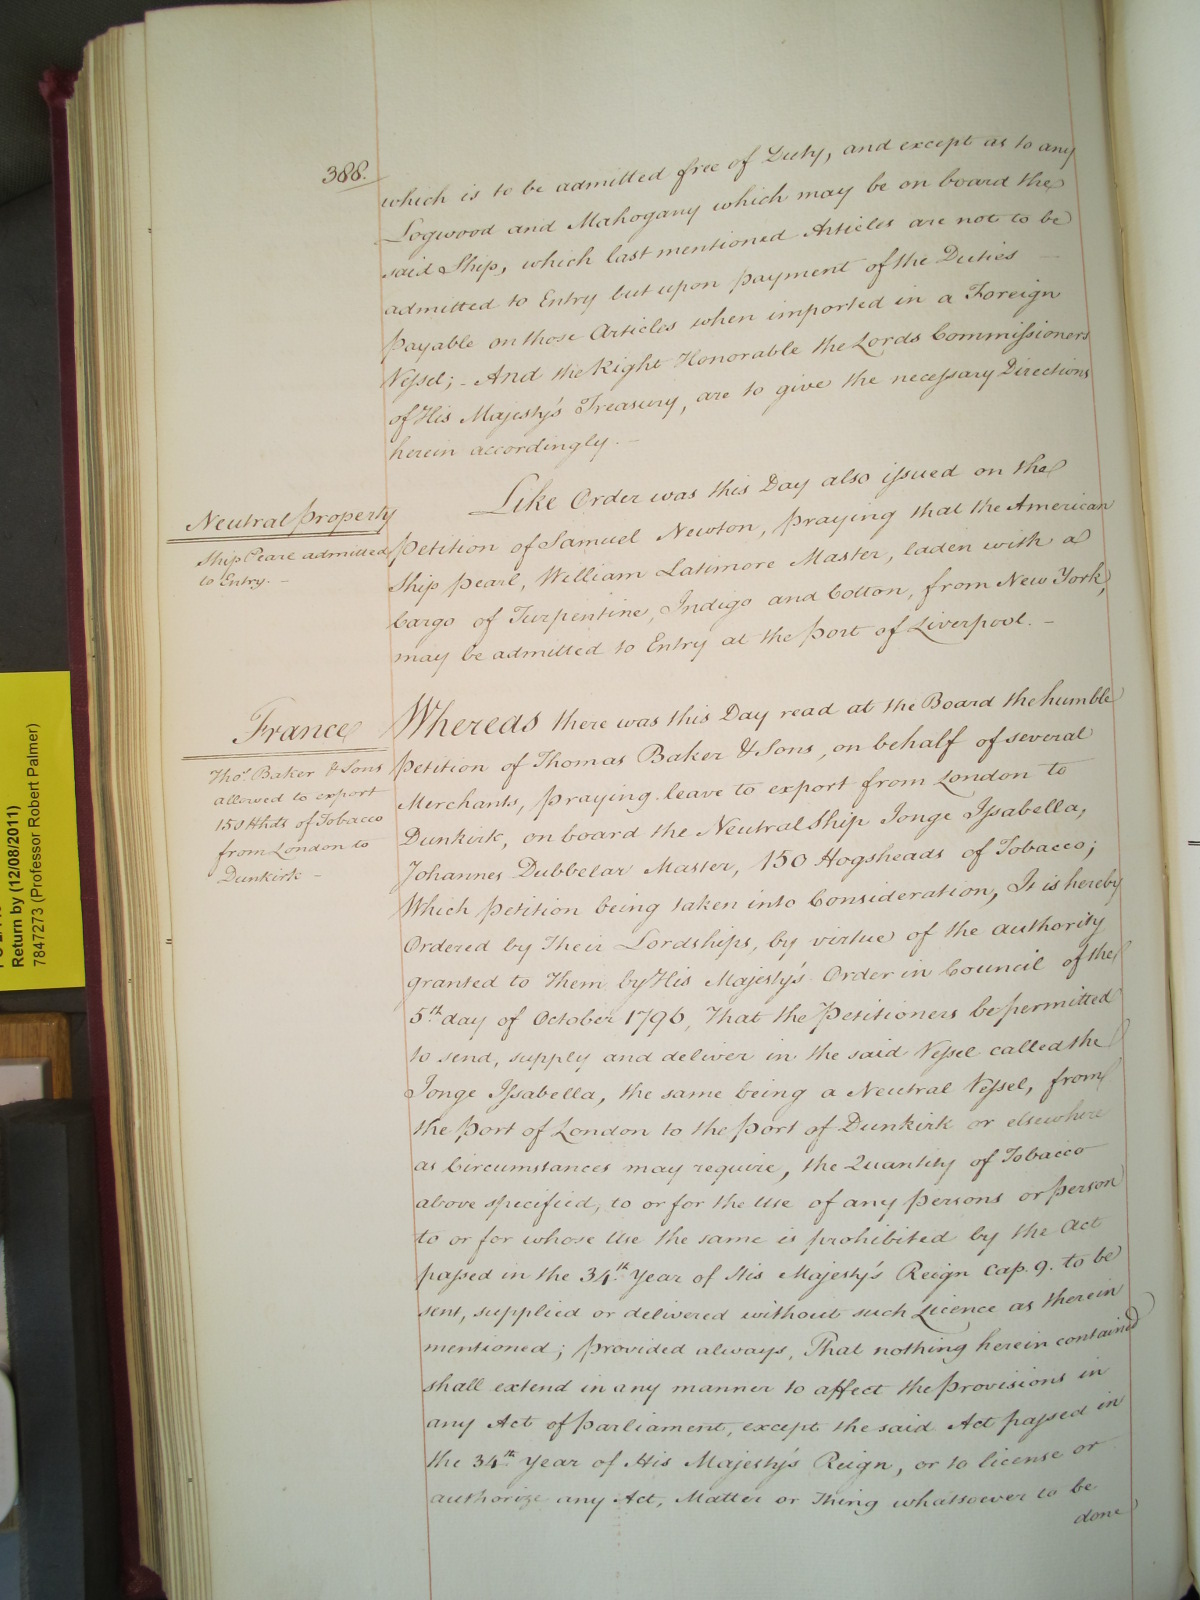 388.
which is to be admitted free of Duty, and except as to any
Logwood and Mahogany which may be on board the
said Ship, which last mentioned Articles are not to be
admitted to Entry but upon payment of the Duties
payable on those Articles when imported in a Foreign
Vessel; - And the Right Honorable the Lords Commissioners
of His Majesty's Treasury, are to give the necessary Directions
herein accordingly. -
Neutral property
Ship Pearl admitted
to Entry. -
Like Order was this Day also issued on the
petition of Samuel Newton, praying that the American
Ship pearl, William Latimore Master, laden with a
Cargo of Turpentine, Indigo and Cotton, from New York,
may be admitted to Entry at the port of Liverpool. -
France
Thos. Baker & Sons
allowed to export
150 Hhds of Tobacco
from London to
Dunkirk -
Whereas there was this Day read at the Board the humble
petition of Thomas Baker & Sons, on behalf of several
Merchants, praying leave to export from London to
Dunkirk, on board the Neutral Ship Jonge Issabella,
Johannes Dubbelar Master, 150 Hogsheads of Tobacco;
Which petition being taken into Consideration, It is hereby
Ordered by Their Lordships, by virtue of the authority
granted to Them by His Majesty's Order in Council of the
5th day of October 1796, That the Petitioners be permitted
to send, supply and deliver in the said Vessel called the
Jonge Issabella, the same being a Neutral Vessel, from
the port of London to the port of Dunkirk or elsewhere
as Circumstances may require, the Quantity of Tobacco
above specified, to or for the Use of any persons or person
to or for whose Use the same is prohibited by the Act
passed in the 34th Year of His Majesty's Reign Cap. 9. to be
sent, supplied or delivered without such Licence as therein
mentioned; provided always, That nothing herein contained
shall extend in any manner to affect the provisions in
any Act of parliament, except the said Act passed in
the 34th Year of His Majesty's Reign, or to license or
authorize any Act, Matter or Thing whatsoever to be
done
Return by (12/08/2011)
7847273 (Professor Robert Palmer)